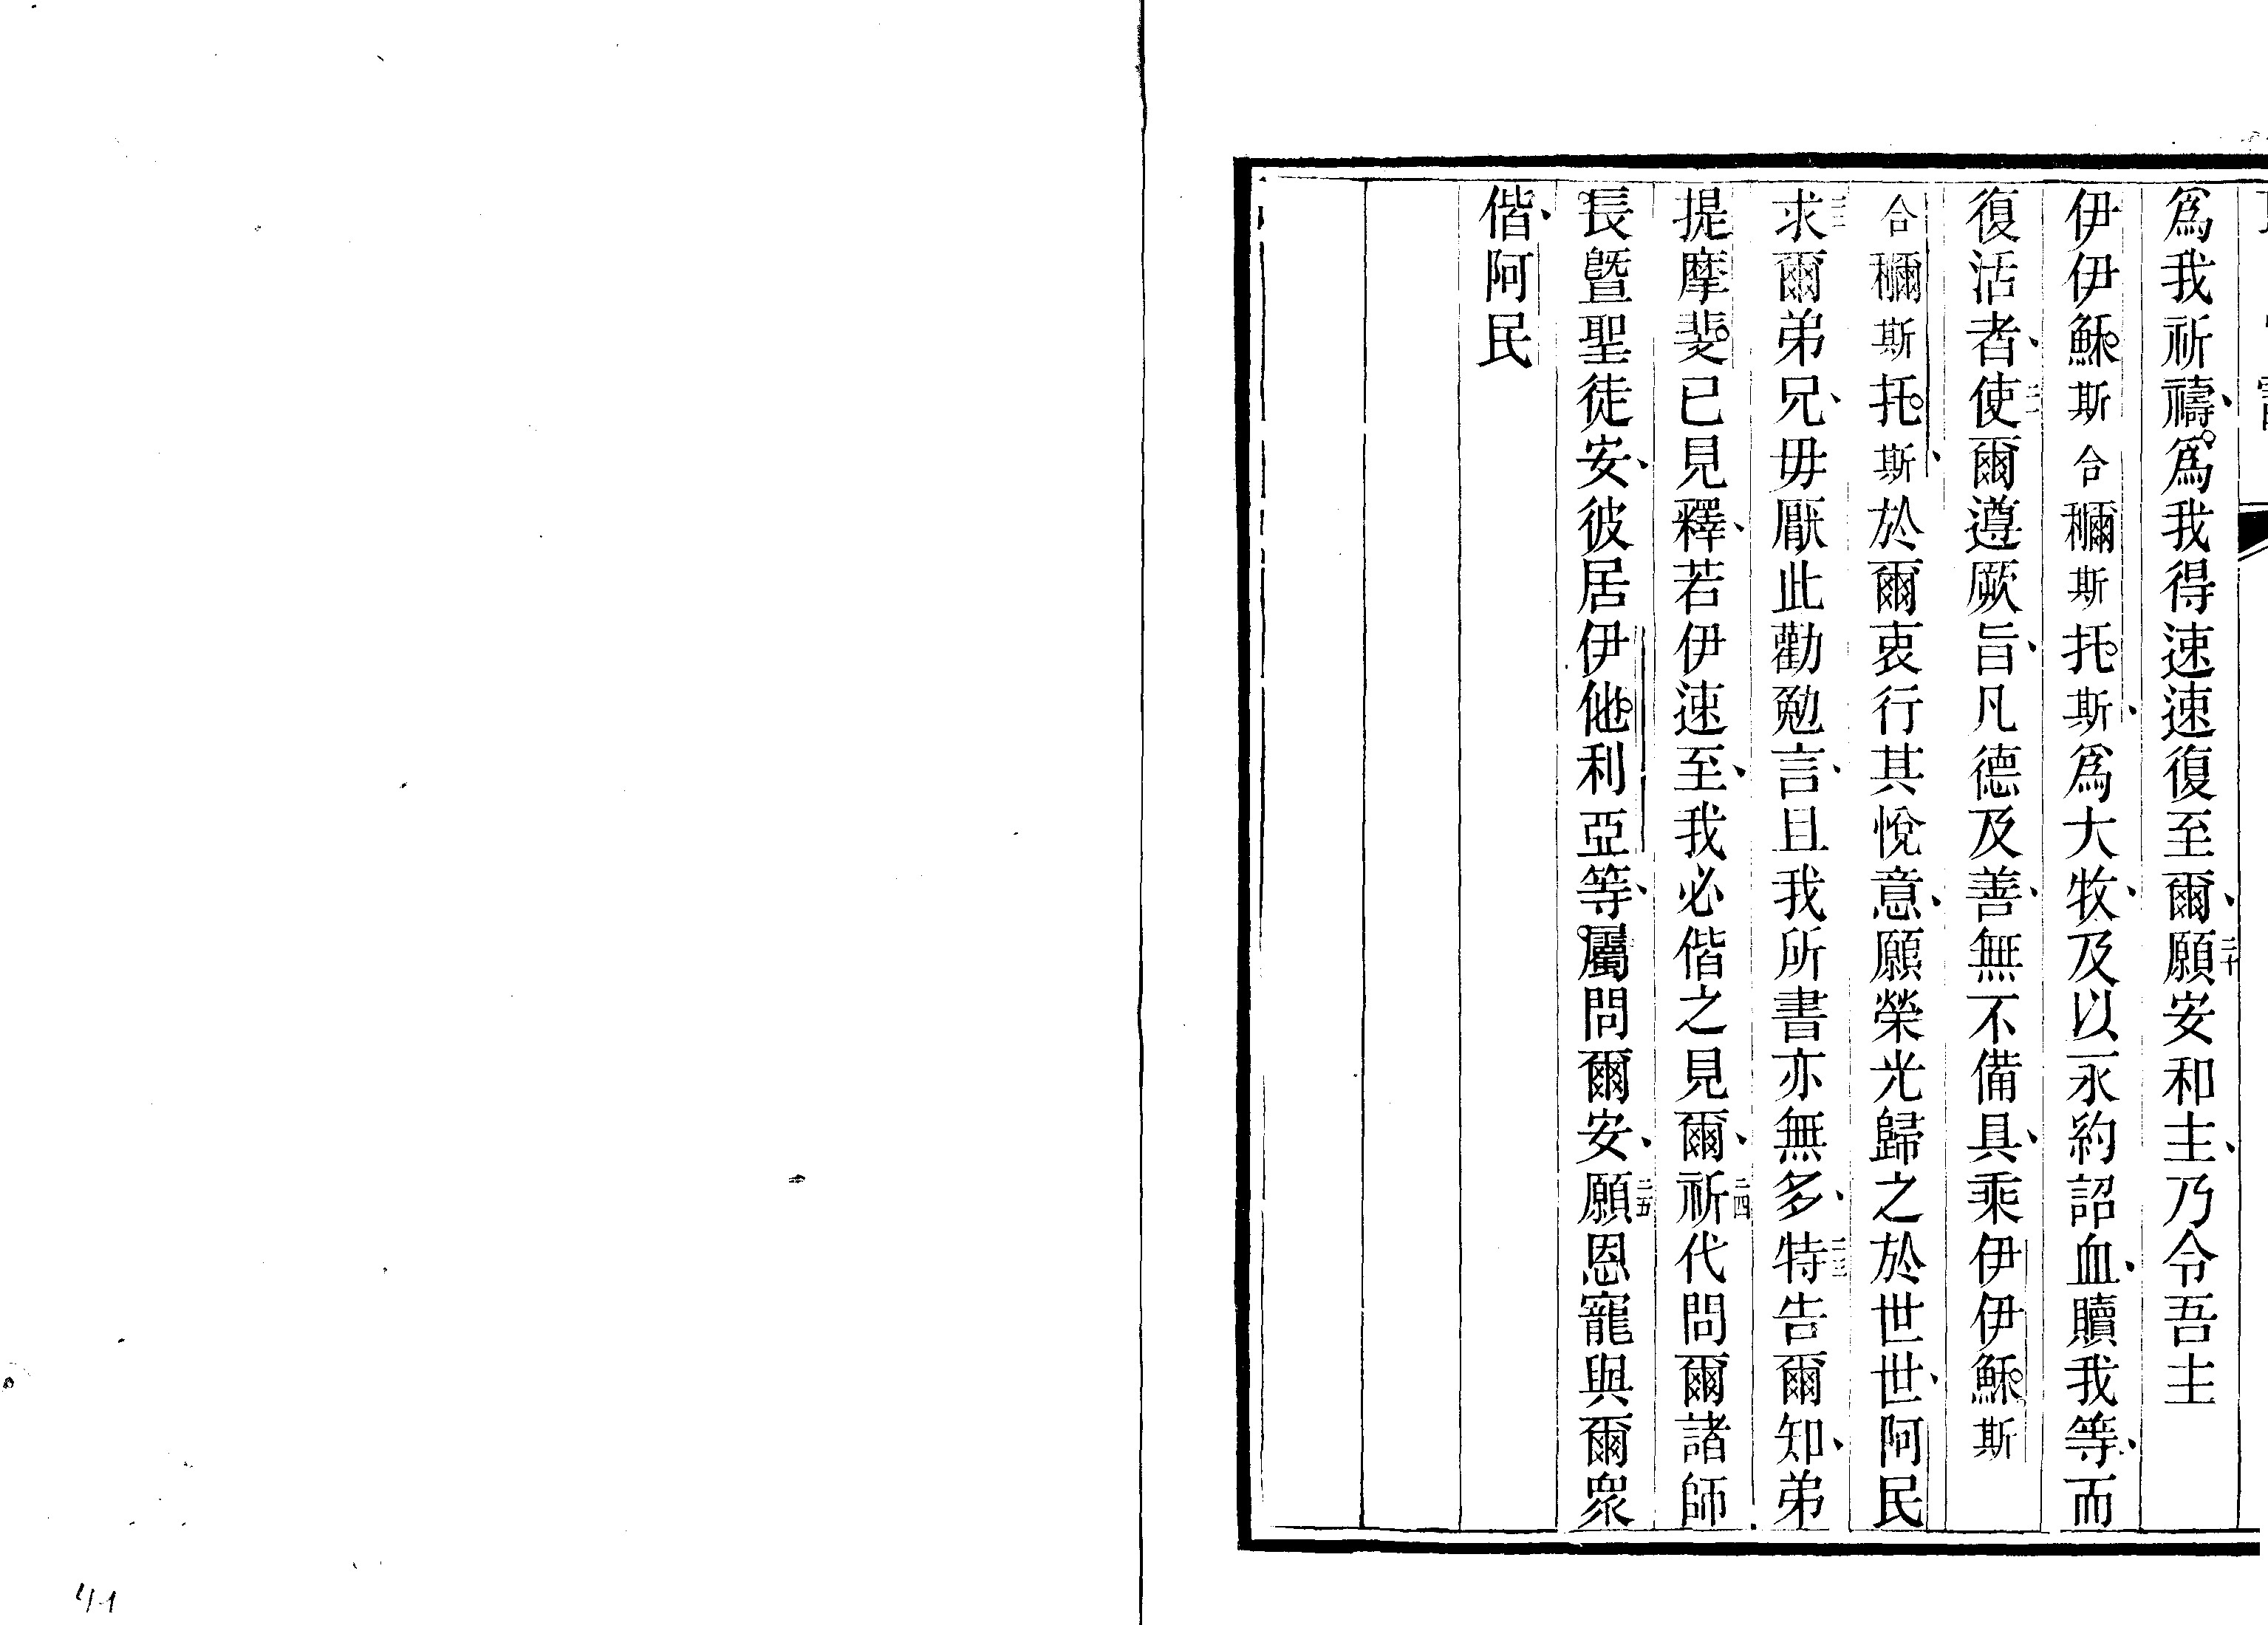 爲我祈禱、爲我得速速復至爾、二十願安和主、乃令吾主
伊伊穌斯合穪斯托斯、爲大牧、及以永約詔血、贖我等、而
復活者、二一使爾遵厥旨、凡德及善、無不備具、乘伊伊穌斯
合穪斯托斯、於爾衷行其悅意、願榮光歸之於世世、阿民
求爾弟兄、毋厭此勸勉言、且我所書亦無多、二三特告爾知、弟
提摩斐已見釋、若伊速至、我必偕之見爾、二四祈代問爾諸師
長曁聖徒安、彼居伊他利亞等、屬問爾安、二五願恩寵與爾衆
偕、阿民
41